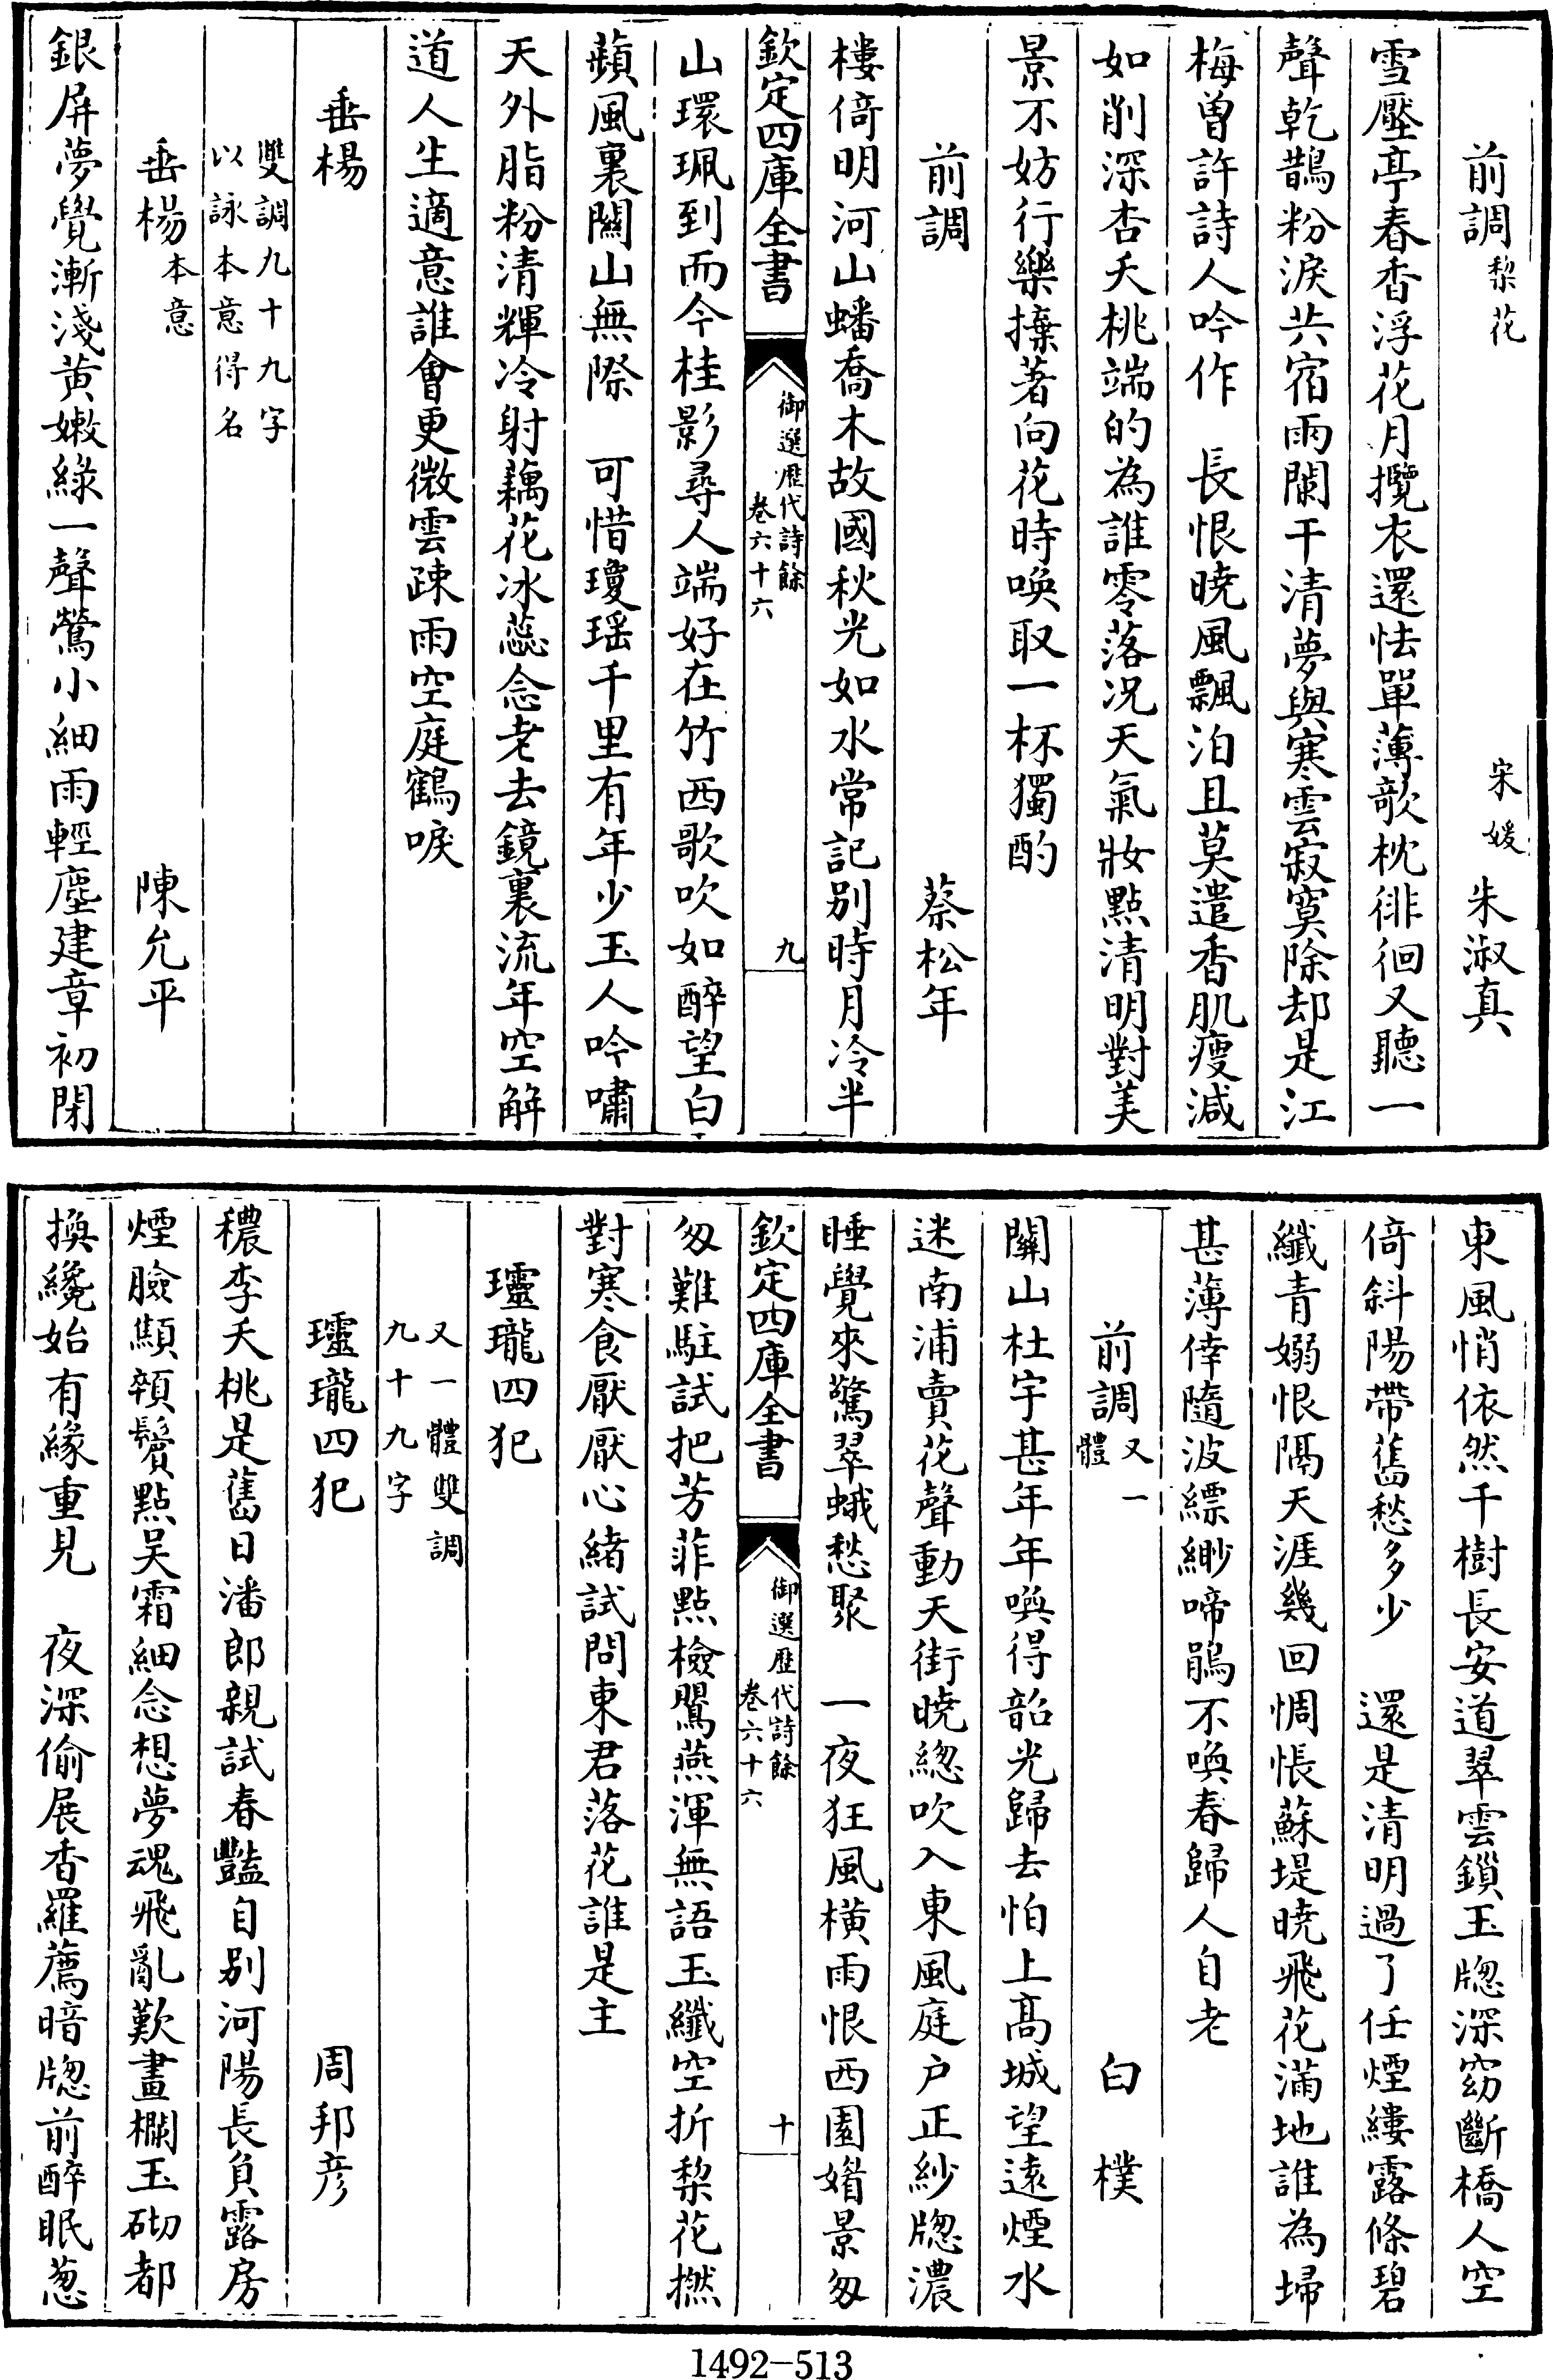 前調梨花　宋媛　朱淑真
雪壓亭春香浮花月攬衣還怯單薄欹枕徘徊又聽一
聲乾鵲粉淚共宿雨闌干清夢與寒雲寂寞除却是江
梅曾許詩人吟作　長恨曉風飄泊且莫遣香肌瘦減
如削深杏夭桃端的為誰零落况天氣妝點清明對美
景不妨行樂㨿著向花時喚取一杯獨酌
前調　蔡松年
樓倚明河山蟠喬木故國秋光如水常記别時月冷半
欽定四庫全書
御選歷代詩餘
卷六十六
九
山環珮到而今桂影尋人端好在竹西歌吹如醉望白
蘋風裏關山無際　可惜瓊瑶千里有年少玉人吟嘯
天外脂粉清輝冷射藕花冰蕊念老去鏡裏流年空解
道人生適意誰會更微雲疎雨空庭鶴唳
垂楊
雙調九十九字
以詠本意得名
垂楊本意　陳允平
銀屏夢覺漸淺黄嫩綠一聲鶯小細雨輕塵建章初閉
東風悄依然千樹長安道翠雲鎖玉牕深窈斷橋人空
倚斜陽帶舊愁多少　還是清明過了任煙縷露條碧
纖青嫋恨隔天涯幾回惆悵蘇堤曉飛花滿地誰為埽
甚薄倖隨波縹緲啼鵑不喚春歸人自老
前調又一體　白樸
關山杜宇甚年年喚得韶光歸去怕上髙城望遠煙水
迷南浦賣花聲動天街曉緫吹入東風庭户正紗牕濃
睡覺來驚翠蛾愁聚　一夜狂風橫雨恨西園媚景匆
欽定四庫全書
御選歷代詩餘
卷六十六
十
匆難駐試把芳菲點檢鶯燕渾無語玉纖空折梨花撚
對寒食厭厭心緒試問東君落花誰是主
瓏璁四犯
又一體雙調
九十九字
瓏璁四犯　周邦彦
穠李夭桃是舊日潘郎親試春豔自别河陽長負露房
煙臉顦顇鬢點吴霜細念想夢魂飛亂歎畫欄玉砌都
換纔始有緣重見　夜深偷展香羅薦暗牕前醉眠葱
1492-513